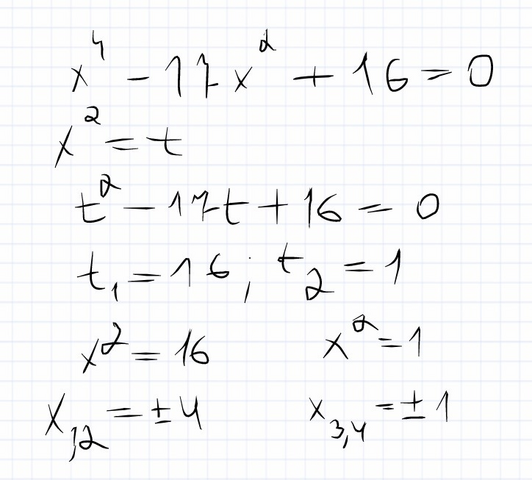 x⁴ - 17x² + 16 = 0
x² = t
t² - 17t + 16 = 0
t₁ = 16; t₂ = 1
x² = 16 x² = 1
x₁,₂ = ±4 x₃,₄ = ±1